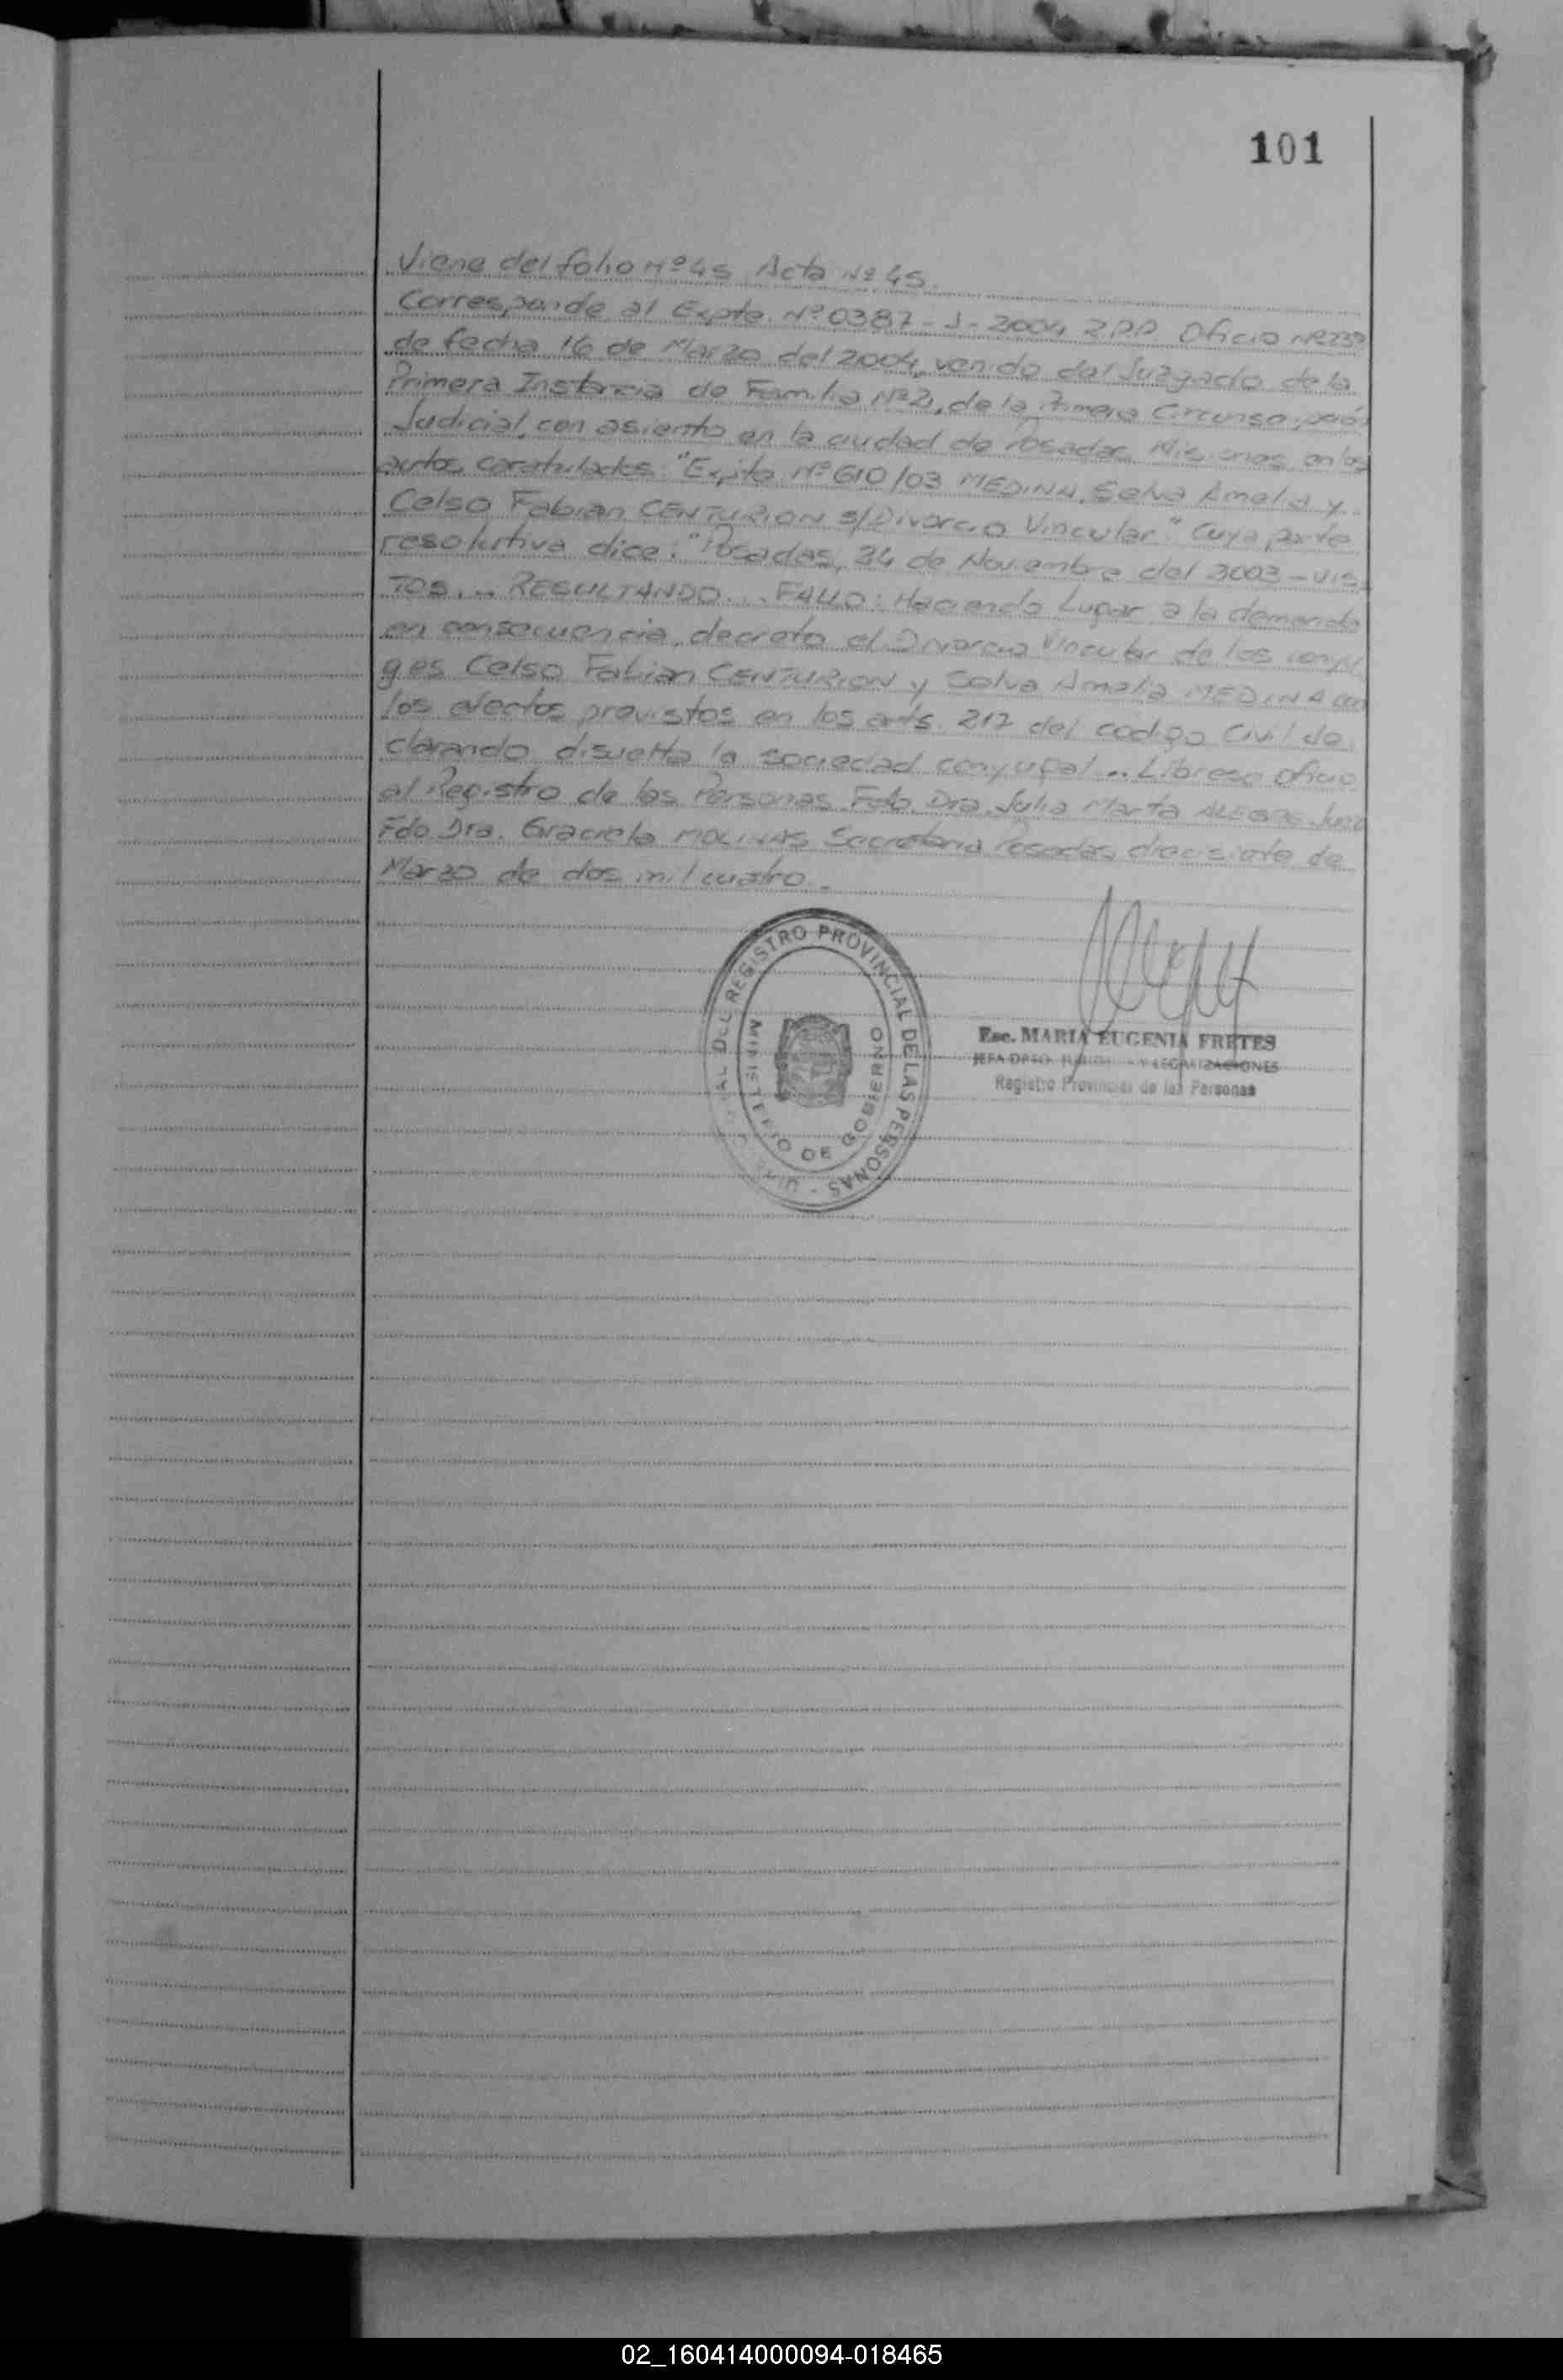 101
Viene del folio Nº 45 Acta Nº 45.
Corresponde al Expte. Nº 0387-J-2004 R.P.P. Oficio Nº 239
de fecha 16 de Marzo del 2004, venido del Juzgado de la
Primera Instancia de Familia Nº 2, de la Primera Circunscripción
Judicial, con asiento en la ciudad de Posadas, Misiones en los
autos caratulados "Expte Nº 610/03 MEDINA, Selva Amelia y
Celso Fabian CENTURION s/Divorcio Vincular." Cuya parte
resolutiva dice: "Posadas, 24 de Noviembre del 2003 - VIS-
TOS... RESULTANDO... FALLO: Haciendo Lugar a la demanda
en consecuencia, decreto el Divorcio Vincular de los cónyu
ges Celso Fabian CENTURION y Selva Amelia MEDINA con
los efectos previstos en los arts. 217 del codigo Civil de
clarando disuelta la sociedad conyugal... Librese oficio
al Registro de las Personas Fdo. Dra. Julia Marta ALEGRE Juez
Fdo Dra. Graciela MOLINAS Secretaria Posadas, diecisiete de
Marzo de dos mil cuatro.-
DEL REGISTRO PROVINCIAL DE LAS PERSONAS -
MINISTERIO DE GOBIERNO
Esc. MARIA EUGENIA FRETES
JEFA DPTO. Y LEGALIZACIONES
Registro Provincial de las Personas
02_160414000094-018465